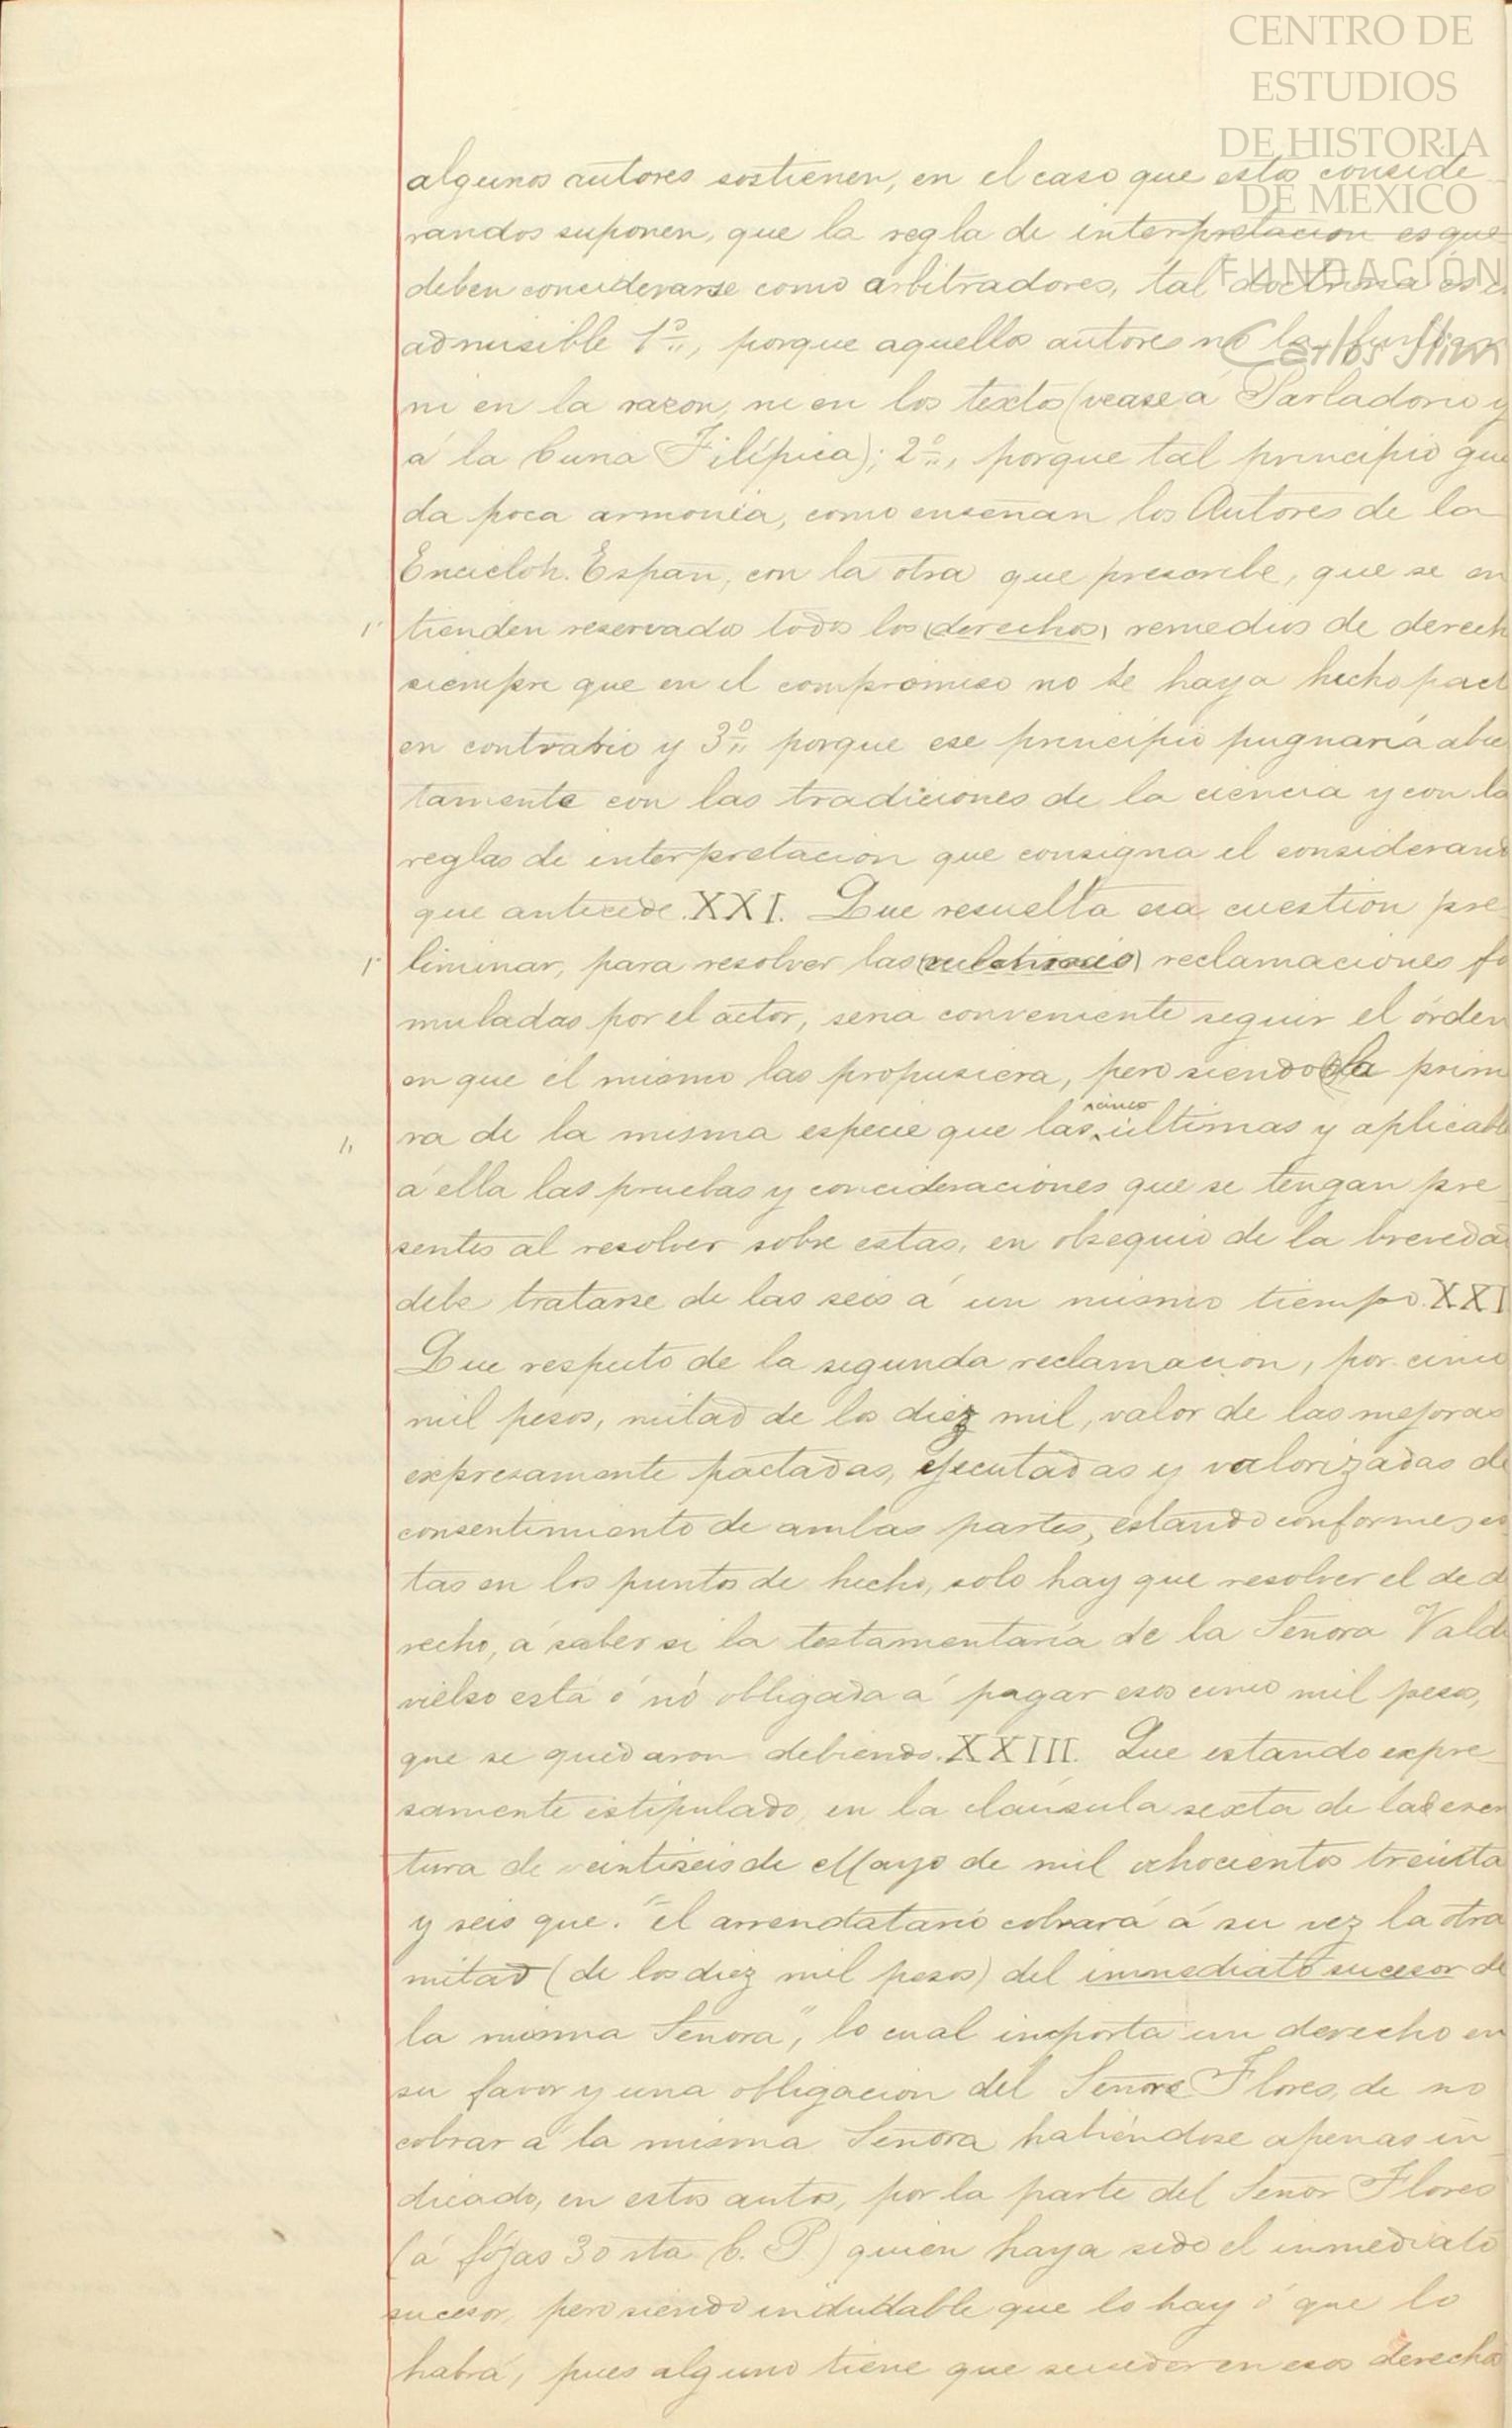 CENTRO DE
ESTUDIOS
DE HISTORIA
DE MEXICO
FUNDACIÓN
Carlos Slim
algunos autores sostienen, en el caso que estos conside
randos suponen, que la regla de interpretacion es que
deben conciderarse como arbitradores, tal doctrina es
admisible 1º, porque aquellos autores no la fundan
ni en la razon, ni en los textos (vease a Parladorio y
á la Curia Filípica); 2º, porque tal principio guar
da poca armonía, como enseñan los Autores de la
Encicloh. Españ, con la otra que prescribe, que se en
1" tienden reservados todos los (derechos) remedios de derech
siempre que en el compromiso no se haya hecho pact
en contrario y 3º porque ese principio pugnaría abie
tamente con las tradiciones de la ciencia y con la
reglas de interpretacion que consigna el considerand
que antecede. XXI. Que resuelta esa cuestion pre
1" liminar, para resolver las reclamaciones fo
muladas por el actor, seria conveniente seguir el órden
en que él mismo las propusiera, pero siendo la prim
ra de la misma especie que las cinco últimas y aplicabl
á ella las pruebas y concideraciones que se tengan pre
sentes al resolver sobre estas, en obsequio de la brevedad
debe tratarse de las seis á un mismo tiempo. XXI
Que respecto de la segunda reclamacion, por cinco
mil pesos, mitad de los diez mil, valor de las mejoras
expresamente pactadas, ejecutadas y valorizadas de
consentimiento de ambas partes, estando conformes es
tas en los puntos de hecho, solo hay que resolver el de d
recho, á saber si la testamentaría de la Señora Valdi
vielso está ó nó obligada á pagar esos cinco mil pesos,
que se quedaron debiendo. XXIII. Que estando expre
samente estipulado, en la clausula sexta de la escri
tura de veintiseis de Mayo de mil ochocientos treinta
y seis que. "el arrendatario cobrará á su vez la otra
mitad (de los diez mil pesos) del inmediato sucesor de
la misma Señora", lo cual importa un derecho en
su favor y una obligacion del Señor Flores, de no
cobrar á la misma Señora habiéndose apenas in
dicado, en estos autos, por la parte del Señor Flores
(á fójas 30 vta C. P.) quien haya sido el inmediato
sucesor, pero siendo indudable que lo hay ó que lo
habrá, pues alguno tiene que suceder en esos derechos